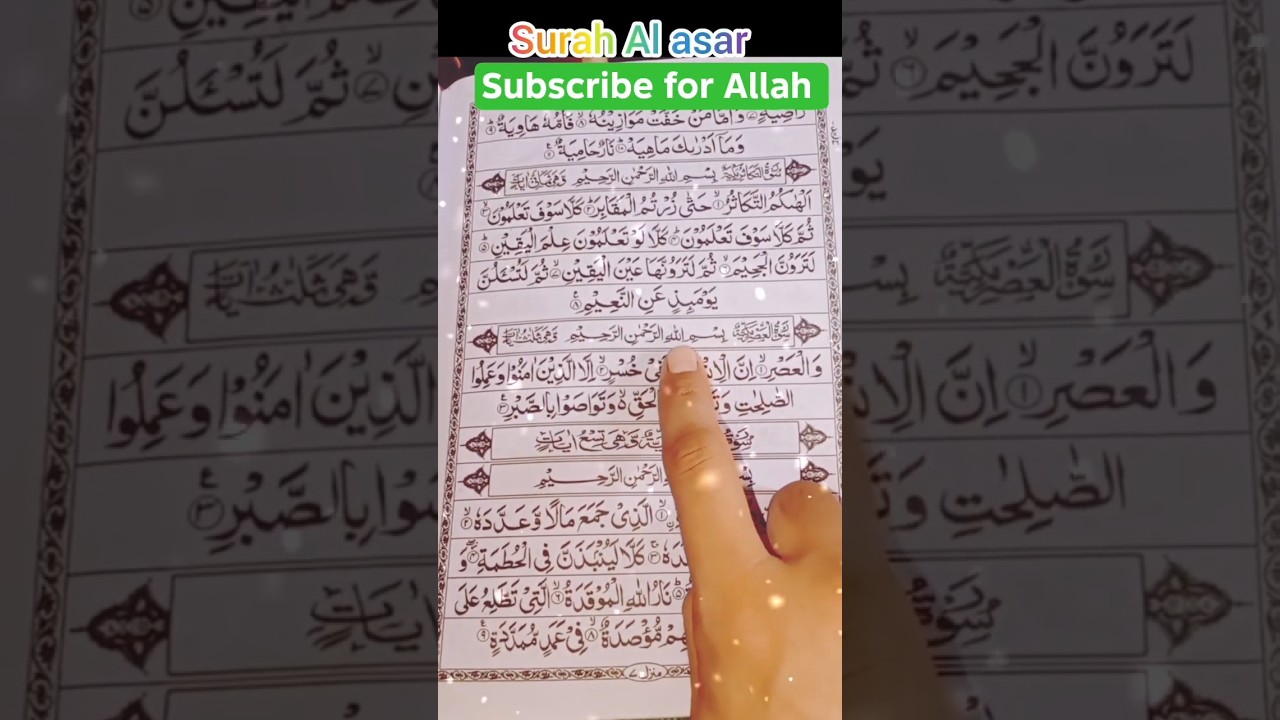 Surah Al asar
Subscribe for Allah
رَّاضِيَةٍ ۷ وَاَمَّا مَنْ خَفَّتْ مَوَازِيْنُهٗ ۸ فَاُمُّهٗ هَاوِيَةٌ ۹
وَمَآ اَدْرٰىكَ مَاهِيَهْ ۱۰ نَارٌ حَامِيَةٌ
سُوْرَةُ التَّكَاثُرِ مَكِّيَّةٌ بِسْمِ اللّٰهِ الرَّحْمٰنِ الرَّحِيْمِ وَهِىَ ثَمَانِىْ اٰيَاتٍ
اَلْهٰىكُمُ التَّكَاثُرُ ۱ حَتّٰى زُرْتُمُ الْمَقَابِرَ ۲ كَلَّا سَوْفَ تَعْلَمُوْنَ ۳
ثُمَّ كَلَّا سَوْفَ تَعْلَمُوْنَ ۴ كَلَّا لَوْ تَعْلَمُوْنَ عِلْمَ الْيَقِيْنِ ۵
لَتَرَوُنَّ الْجَحِيْمَ ۶ ثُمَّ لَتَرَوُنَّهَا عَيْنَ الْيَقِيْنِ ۷ ثُمَّ لَتُسْـَٔلُنَّ
يَوْمَىِٕذٍ عَنِ النَّعِيْمِ ۸
سُوْرَةُ الْعَصْرِ مَكِّيَّةٌ بِسْمِ اللّٰهِ الرَّحْمٰنِ الرَّحِيْمِ وَهِىَ ثَلٰثُ اٰيَاتٍ
وَالْعَصْرِ ۱ اِنَّ فِىْ خُسْرٍ ۲ اِلَّا الَّذِيْنَ اٰمَنُوْا وَعَمِلُوا
الصّٰلِحٰتِ وَتَوَاصَوْا بِالصَّبْرِ ۳
سُوْرَةُ وَّهِىَ تِسْعُ اٰيَاتٍ
الرَّحْمٰنِ الرَّحِيْمِ
الَّذِىْ جَمَعَ مَالًا وَّعَدَّدَهٗ ۲
۳ كَلَّا لَيُنْۢبَذَنَّ فِى الْحُطَمَةِ ۴ وَ
۵ نَارُ اللّٰهِ الْمُوْقَدَةُ ۶ الَّتِىْ تَطَّلِعُ عَلَى
مُّؤْصَدَةٌ ۸ فِىْ عَمَدٍ مُّمَدَّدَةٍ ۹
منزل ۷